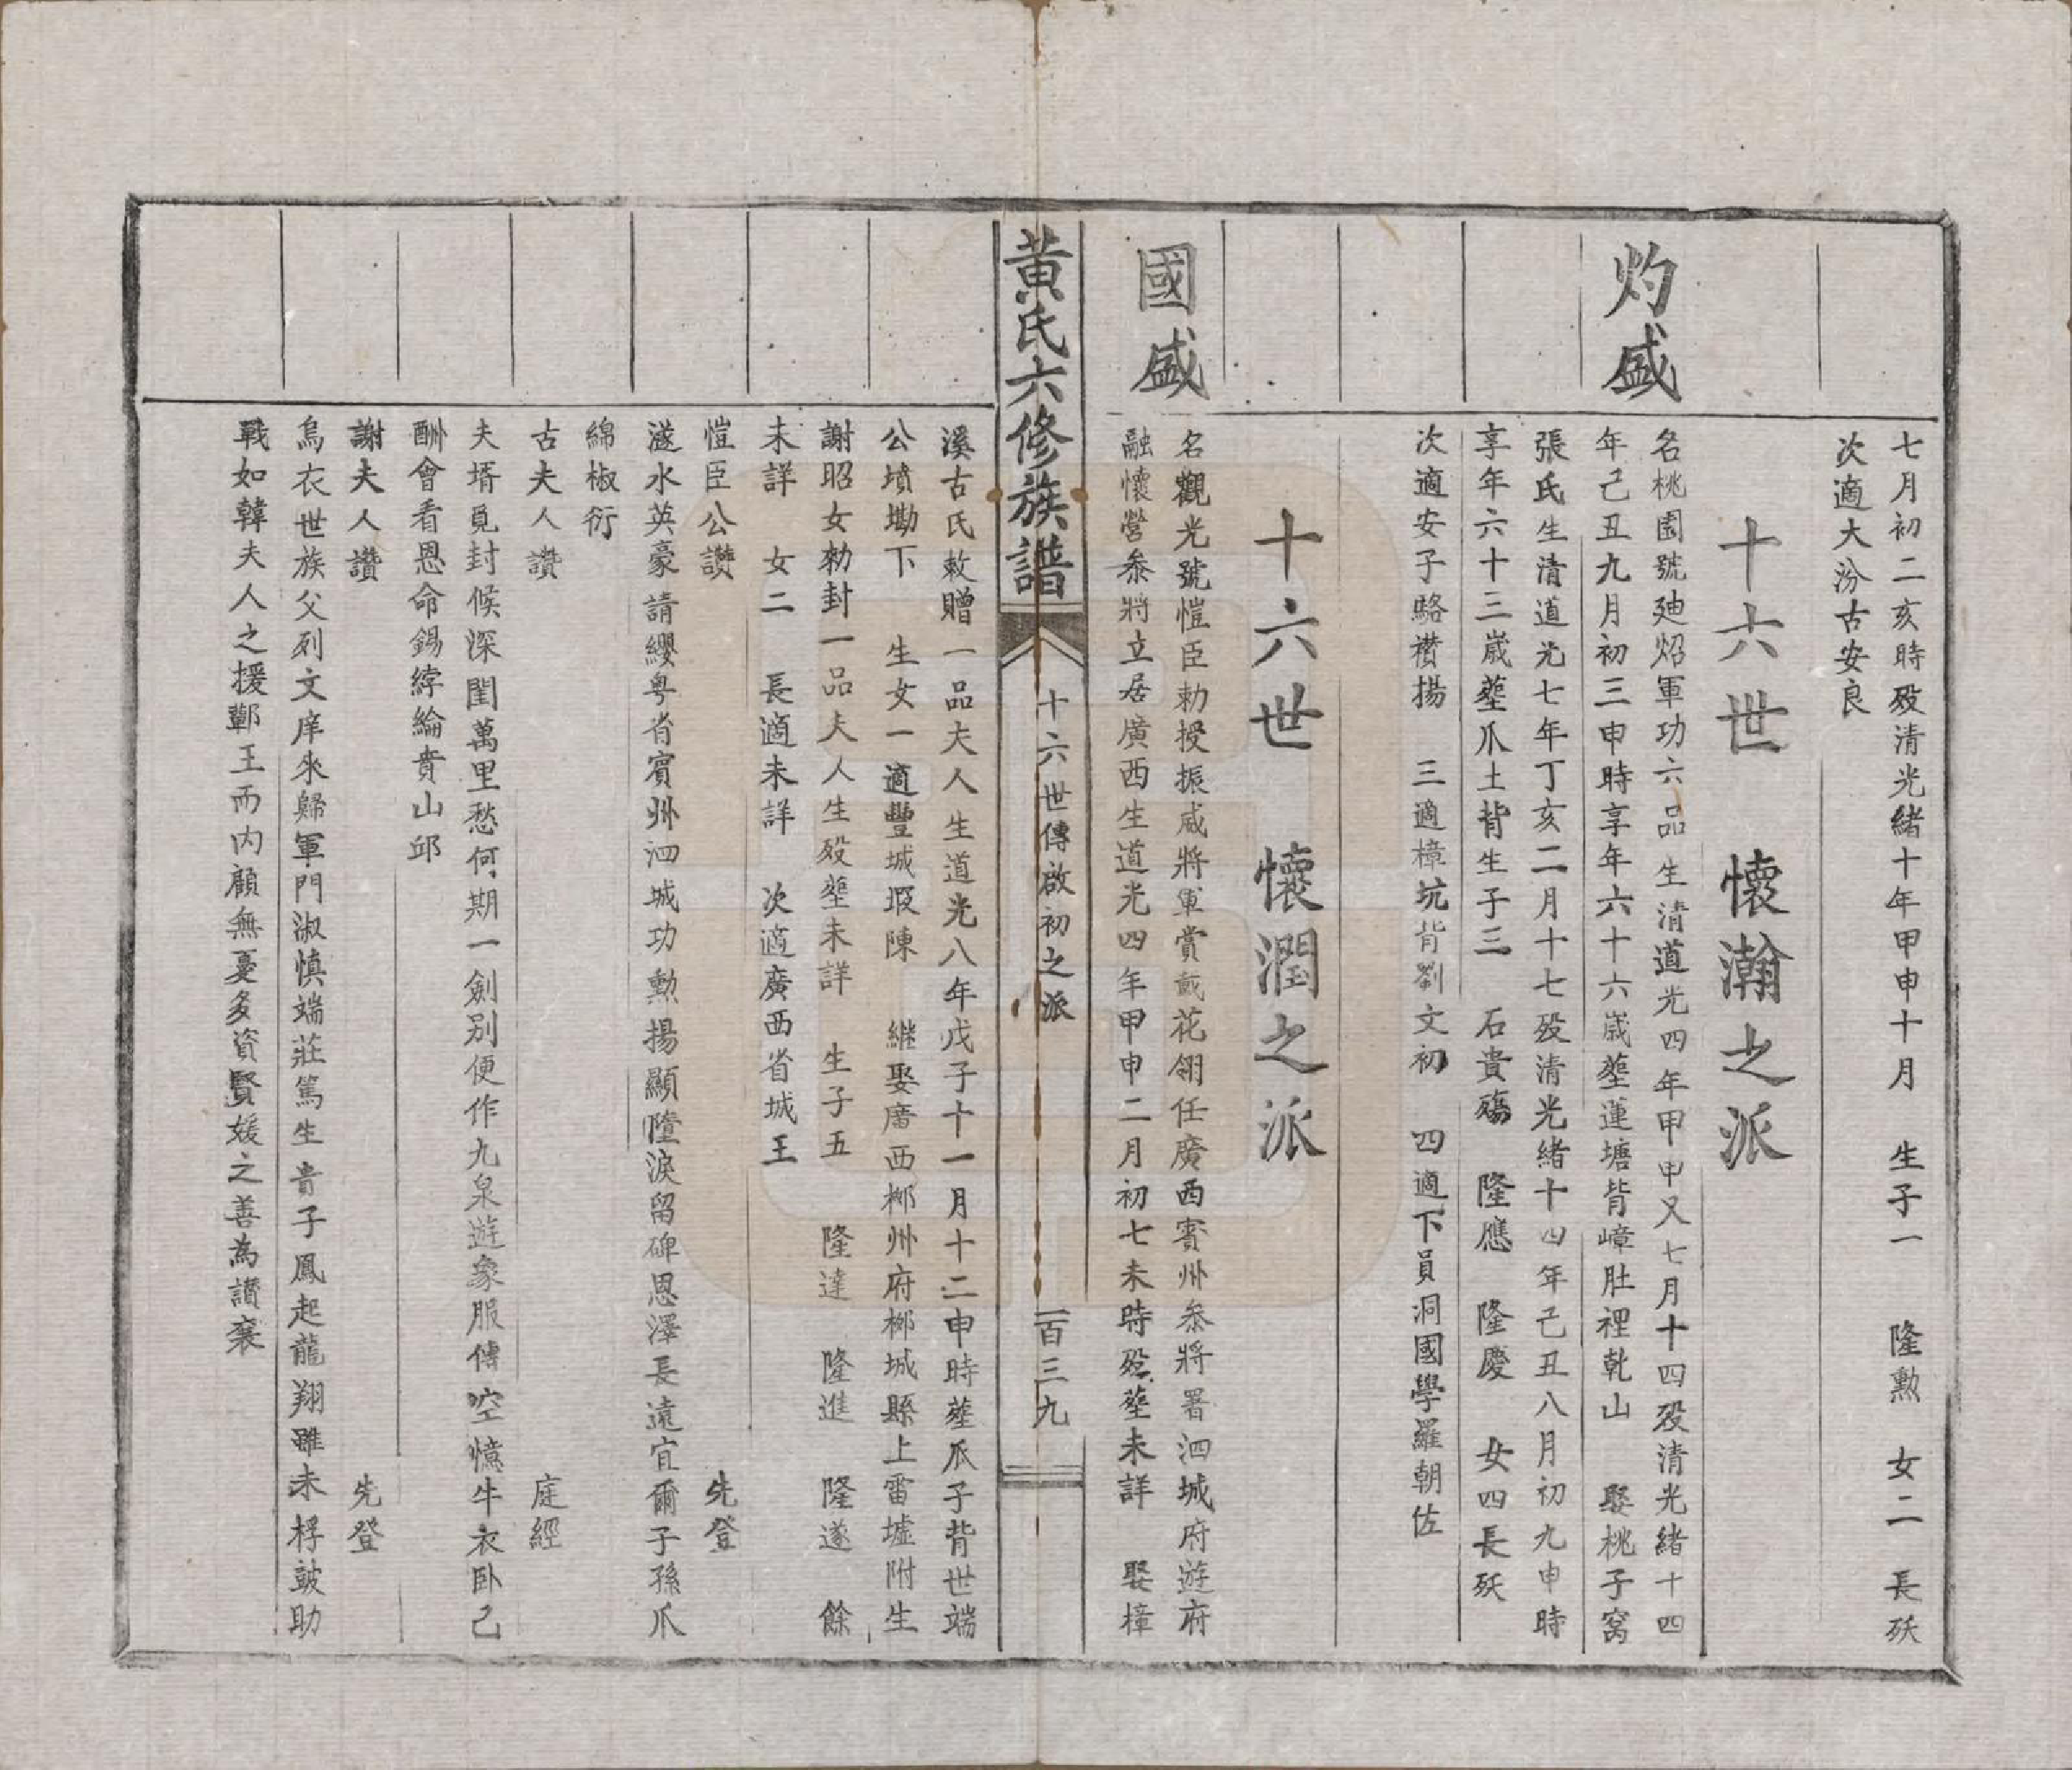 七月初二亥時殁清光緒十年甲申十月　生子一　隆勲　女二　長殀
次適大汾古安良
十六世　懷瀚之派
灼盛
名桃園號廸炤軍功六品生清道光四年甲申又七月十四殁清光緒十四
年己丑九月初三申時享年六十六歲塟蓮塘背嶂肚裡乾山　娶桃子窩
張氏生清道光七年丁亥二月十七殁清光緒十四年己丑八月初九申時
享年六十三歲塟爪土背生子三　石貴殤　隆應　隆慶　女四長殀
次適安子駱襸揚　三適樟坑背劉文初　四適下員洞國學羅朝佐
十六世　懷潤之派
國盛
名觀光號愷臣勅授振威將軍賞戴花翎任廣西賓州叅將署泗城府遊府
融懷營叅將立居廣西生道光四年甲申二月初七未時殁塟未詳　娶樟
黃氏六修族譜
十六世傳啟初之派
一百三九
溪古氏敕贈一品夫人生道光八年戊子十一月十二申時塟瓜子背世端
公墳墈下　生女一適豐城瑕陳　繼娶廣西郴州府郴城縣上雷墟附生
謝昭女勅封一品夫人生殁塟未詳　生子五　隆達　隆進　隆遂　餘
未詳　女二　長適未詳　次適廣西省城王
愷臣公讚　先登
遂水英豪請纓粤省賓州泗城功勲揚顯墮淚留碑恩澤長遠宜爾子孫爪
綿椒衍
古夫人讚　庭經
夫壻覓封候深閨萬里愁何期一劍別便作九泉遊象服傳空憶牛衣卧己
酬會看恩命錫綍綸賁山邱
謝夫人讚　先登
烏衣世族父列文庠來歸軍門淑慎端莊篤生貴子鳳起龍翔雖未桴鼓助
戰如韓夫人之援鄿王而內顧無憂多資賢媛之善為讃襄